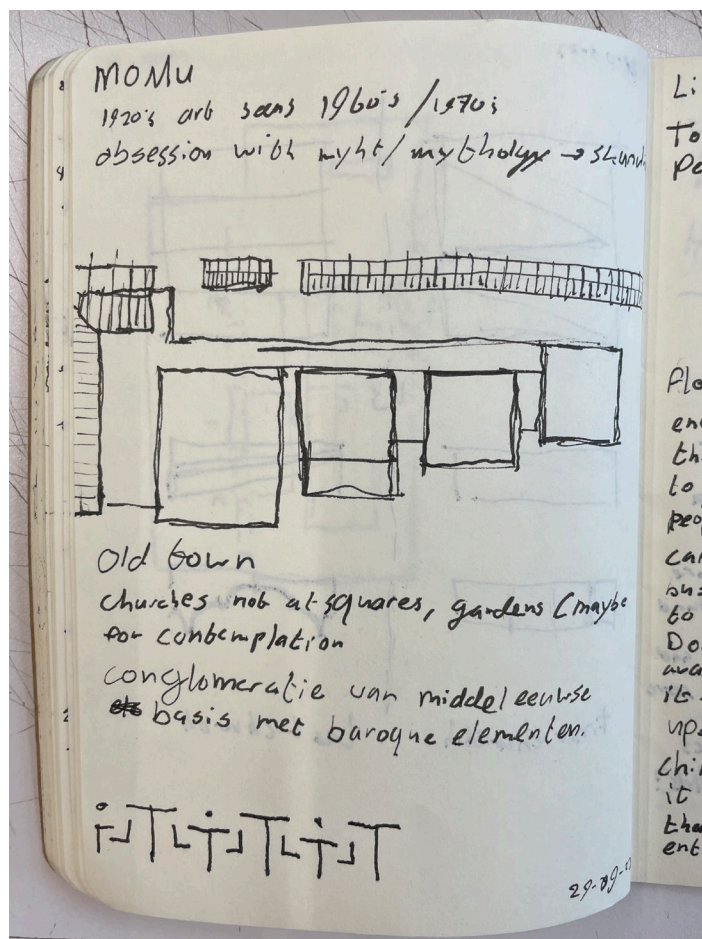 MOMU
1920's art sans 1960's / 1970's
obsession with myht / mythology →
Old town
churches not at squares, gardens (maybe
for contemplation
conglomeratie van middeleeuwse
basis met baroque elementen.
29-09-
Li
To
Pe
flo
en
th
to
peo
can
ons
to
Do
ava
its
up
chi
it
tha
ent